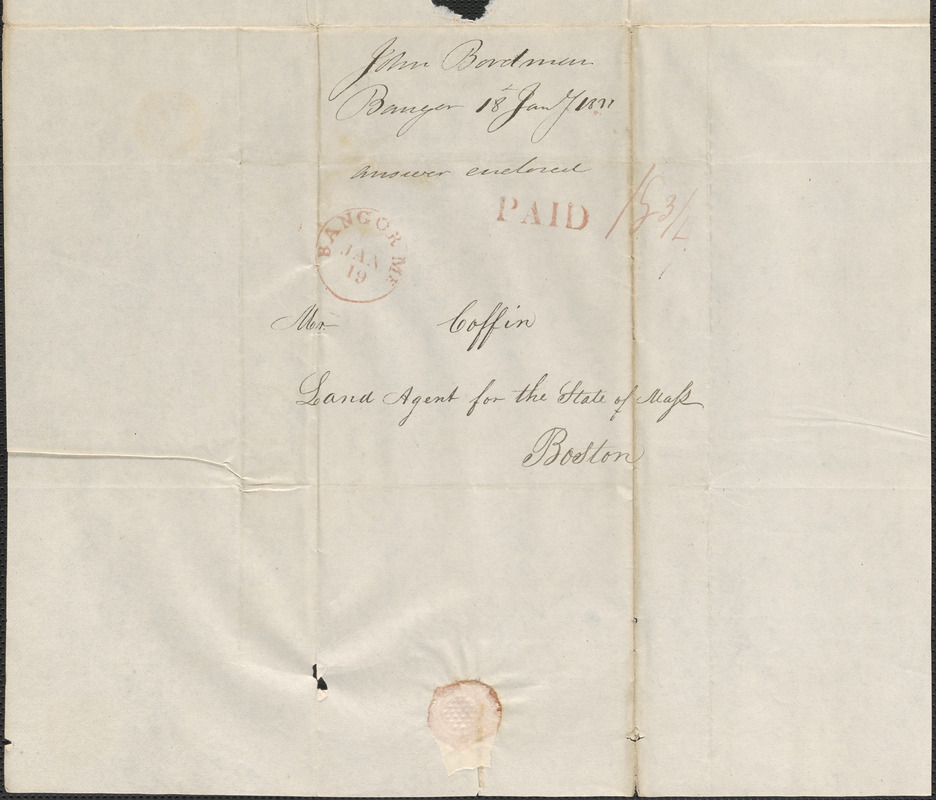 John Bordman
Bangor 18 Jany 1831
answer enclosed
PAID 18 3/4
BANGOR ME
JAN
19
Mr. Coffin
Land Agent for the State of Mass
Boston